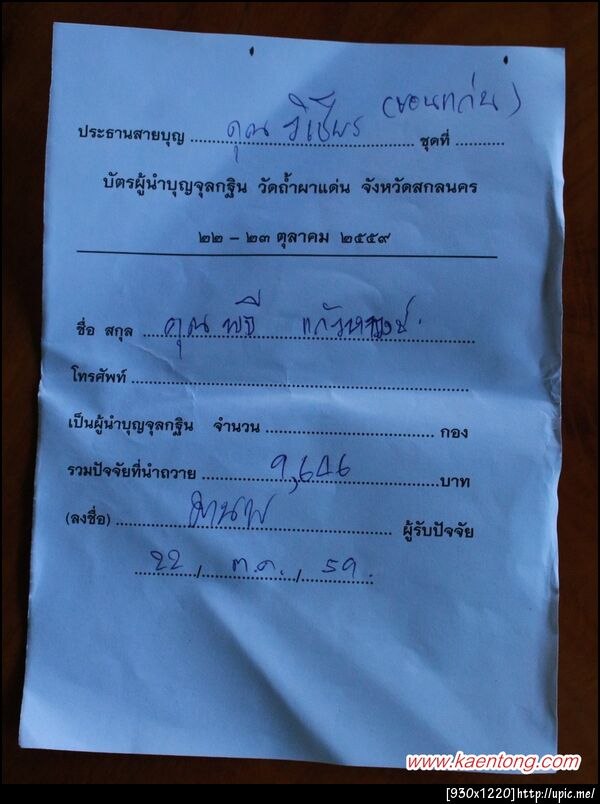 (ขอนแก่น)
ประธานสายบุญ คุณ วิเชียร ชุดที่
บัตรผู้นำบุญจุลกฐิน วัดถ้ำผาแด่น จังหวัดสกลนคร
๒๒ - ๒๓ ตุลาคม ๒๕๕๙
ชื่อ สกุล คุณ
โทรศัพท์
เป็นผู้นำบุญจุลกฐิน จำนวน กอง
รวมปัจจัยที่นำถวาย 9,646 บาท
(ลงชื่อ) ผู้รับปัจจัย
22 / ต.ค. / 59.
www.kaentong.com
[930x1220]http://upic.me/